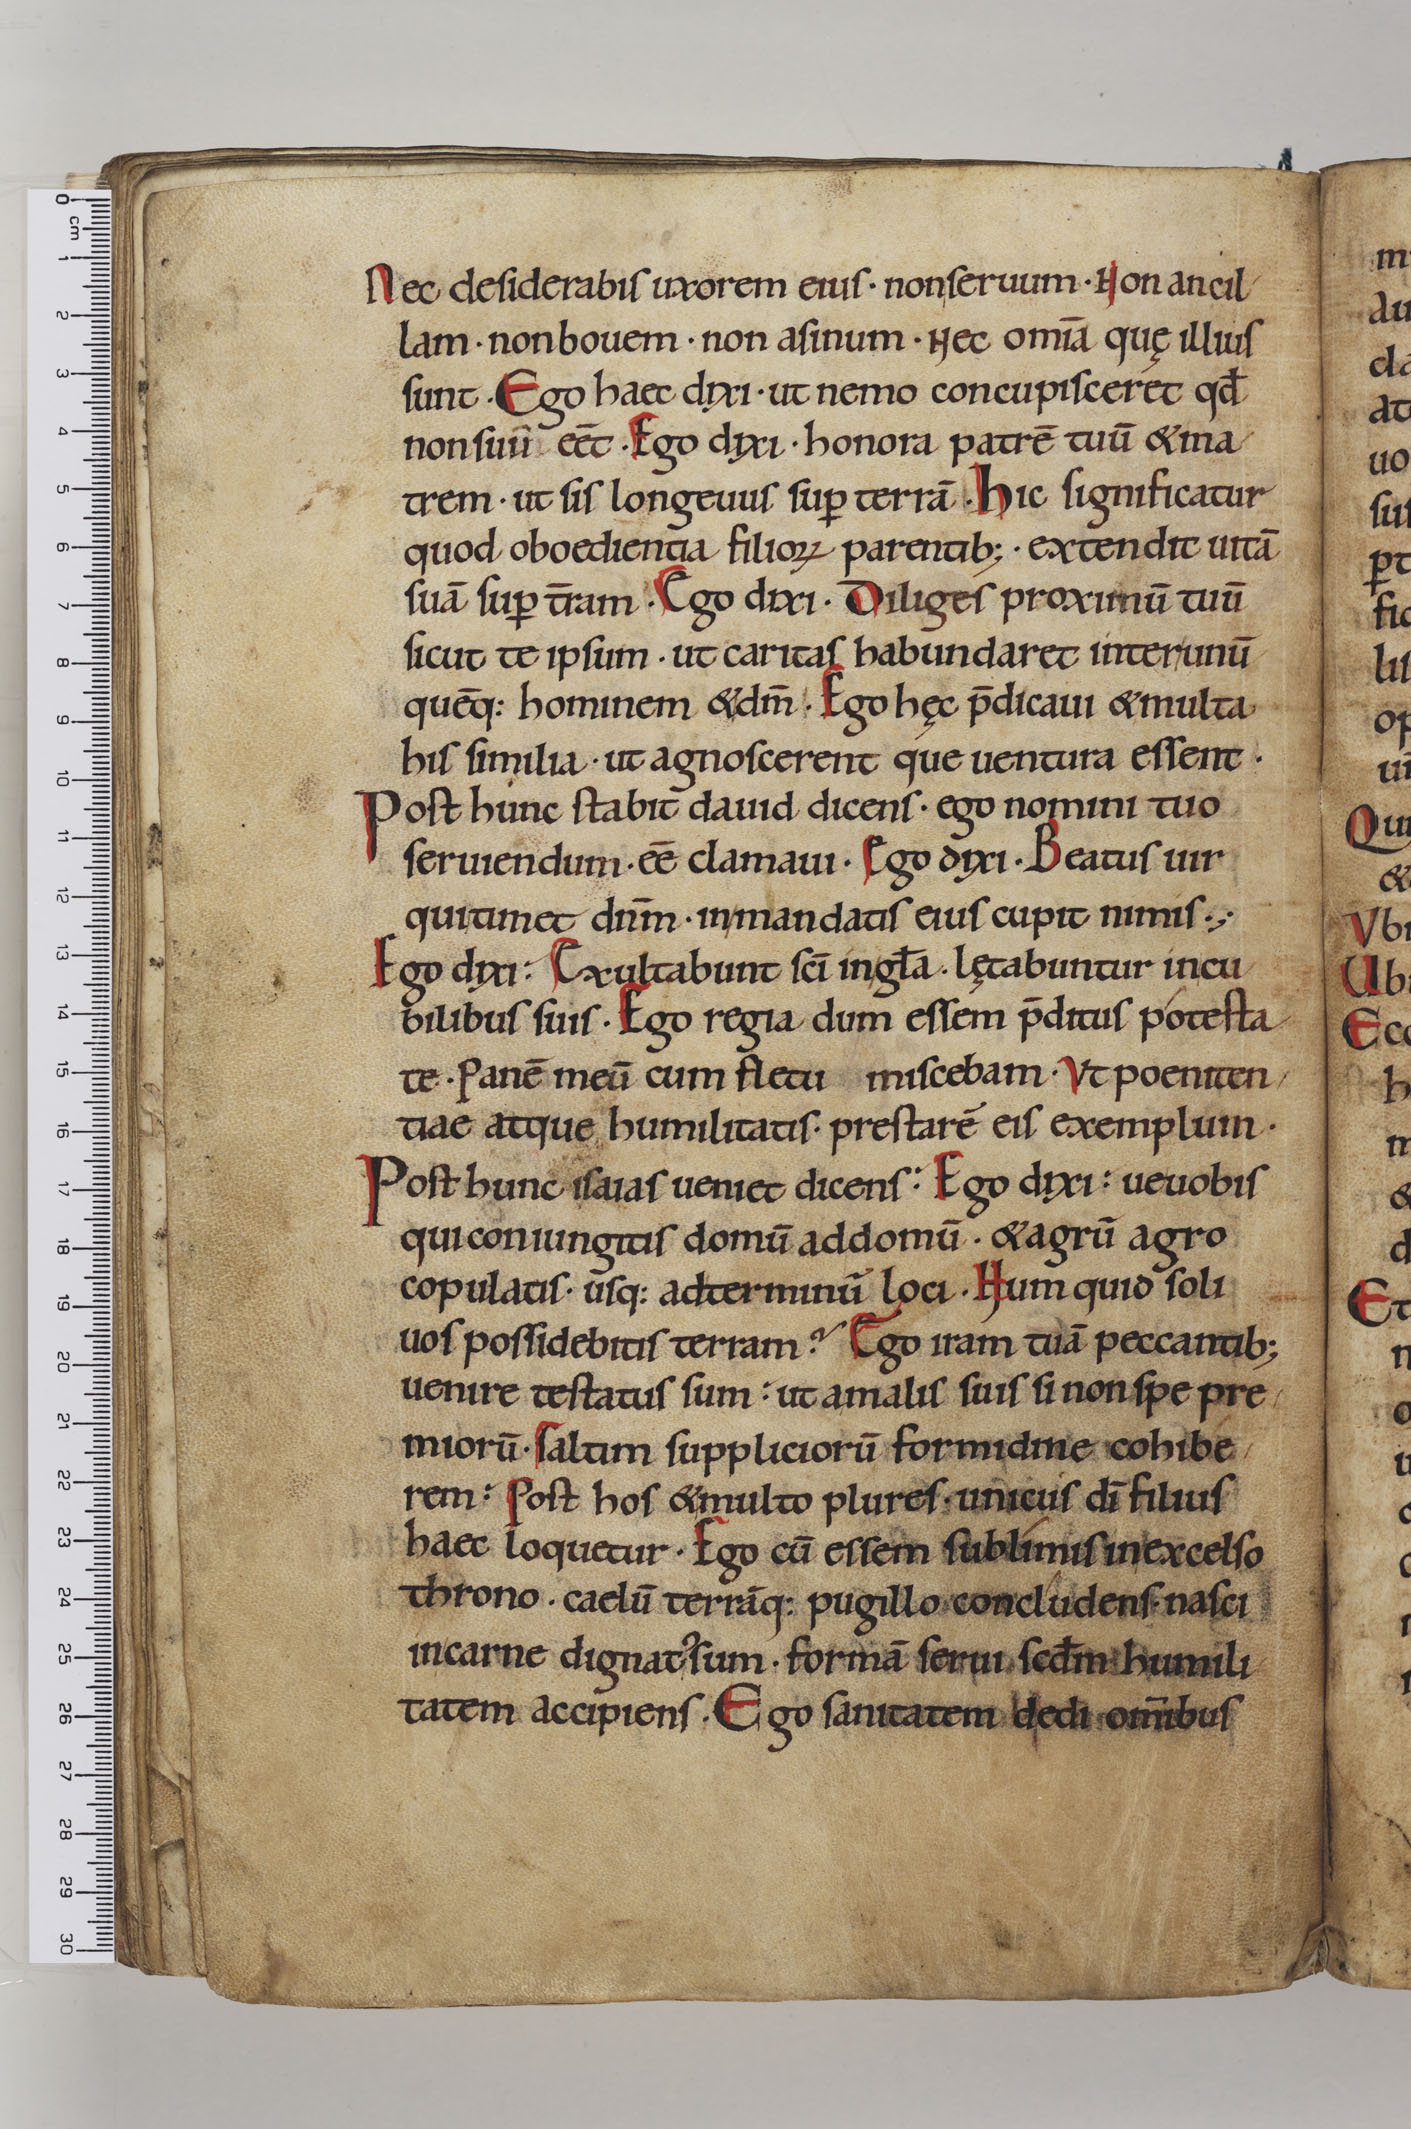 Nec desiderabis uxorem eius · non seruum · Non ancil
lam · non bouem · non asinum · Nec om̄ia quę illius
sunt · Ego haec dixi · ut nemo concupisceret qđ
non suū eēt · Ego dixi · honora patrē tuū & ma
trem · ut sis longeuus suꝑ terrā · Hic significatur
quod oboedientia filioꝝ parentib; · extendit uitā
suā suꝑ t̄ram · Ego dixi · Diliges proximū tuū
sicut te ipsum · ut caritas habundaret inter unū
quēq: hominem & dm̄ · Ego hęc p̄dicaui & multa
his similia · ut agnoscerent que uentura essent ·
Post hunc stabit dauid dicens · ego nomini tuo
seruiendum · eē clamaui · Ego dixi · Beatus uir
qui timet dn̄m · in mandatis eius cupit nimis ·
Ego dixi : Exultabunt sc̄i in gła · lętabuntur in cu
bilibus suis · Ego regia dum essem p̄ditus potesta
te · Panē meū cum fletu miscebam · Vt poeniten
tiae atque humilitatis · prestarē eis exemplum ·
Post hunc isaias ueniet dicens : Ego dixi : ue uobis
qui coniungitis domū ad domū · & agrū agro
copulatis · usq: ad terminū loci · Num quid soli
uos possidebitis terram ? Ego iram tuā peccantib;
uenire testatus sum : ut a malis suis si non spe pre
miorū · saltim suppliciorū formidine cohibe
rem : Post hos & multo plures · unicus dī filius
haec loquetur · Ego cū essem sublimis in excelso
throno · caelū terrāq: pugillo concludens · nasci
in carne dignatꝰ sum · formā serui scđm humili
tatem accipiens · Ego sanitatem dedi om̄ibus